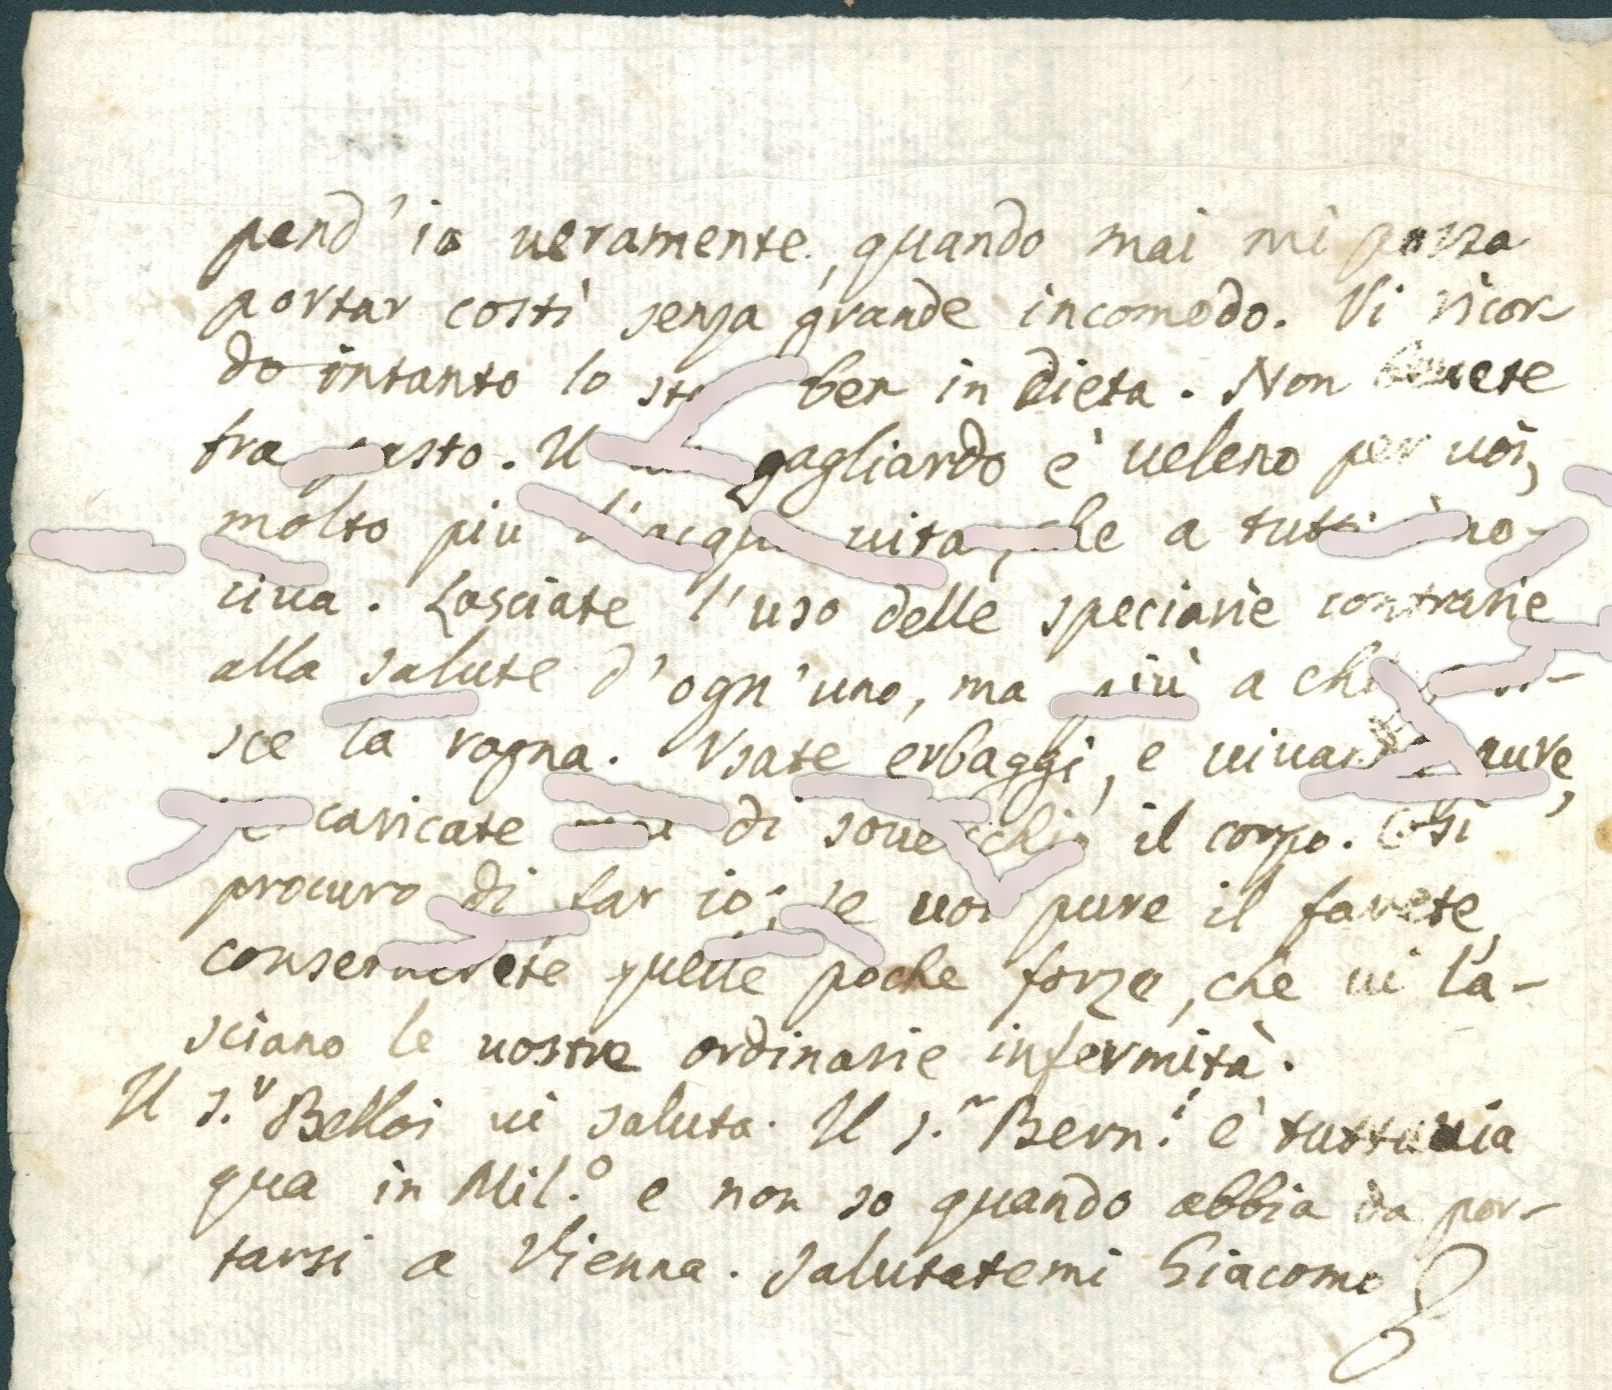 pend' io ueramente, quando mai mi possa
portar costì senza grande incomodo. Vi ricor-
do intanto lo ben in dieta. Non beuete
fra pasto. Il gagliardo è ueleno per uoi,
molto piu l'acqua uita, che a tutti è no-
ciua. Lasciate l'uso delle speciarie contrarie
alla salute d'ogn'uno, ma più a chi
sce la rogna. Vsate erbaggi, e uiuande pure,
caricate di souerchio il corpo. Così
procuro di far io; se uoi pure il farete,
conseruerete quelle poche forze, che ui la-
sciano le uostre ordinarie infermità.
Il S.r Belloi ui saluta. Il S.r Bern.i è tuttauia
qua in Mil.o e non so quando abbia da por-
tarsi a Vienna. Salutatemi Giacomo